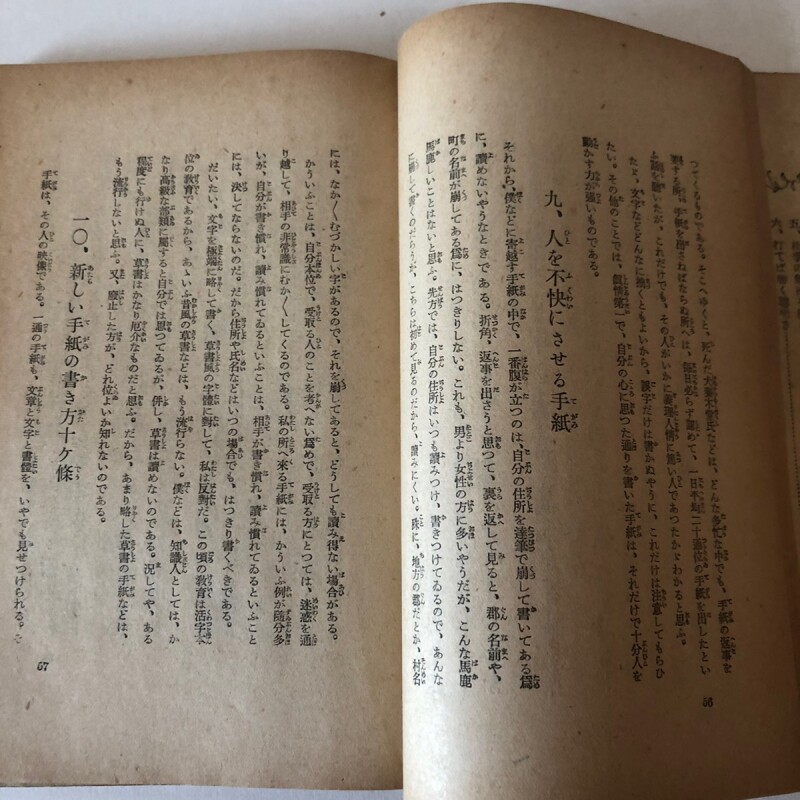 つてくるものである。そこへゆくと、死んだ大新不管氏などは、どんな多忙な中でも、手紙の返事を
聞する外い、手紙を出さねばならぬ所へは、毎日怠らず認めて、一日平均二十通位の手紙を出したとい
ふ話を聴いたが、これだけでも、その人がいかに義理人情に篤い人であつたかとわかると思ふ。
たゞ、文字などどんなに拙くともよいから、誤字だけは書かぬやうに、これだけは注意してもらひ
たい。その他のことでは、眞情第一で、自分の心に思つた通りを書いた手紙は、それだけで十分人を
動かす力が強いものである。
九、人を不快にさせる手紙
それから、僕などに寄越す手紙の中で、一番腹が立つのは、自分の住所を達筆で崩して書いてある爲
に、讀めないやうなときである。折角、返事を出さうと思つて、裏を返して見ると、郡の名前や、
町の名前が崩してある爲に、はつきりしない。これも、男より女性の方に多いやうだが、こんな馬鹿
馬鹿しいことはないと思ふ。先方では、自分の住所はいつも讀みつけ、書きつけてゐるので、あんな
に崩して書くのだらうが、こちらは初めて見るのだから、讀みにくい。殊に、地方の郡だとか、村名
56
には、なか〳〵むづかしい字があるので、それを崩してあると、どうしても讀み得ない場合がある。
かういふことは、自分本位で、受取る人のことを考へない爲めで、受取る方にとつては、迷惑を通
り越して、相手の非常識にむか〳〵してくるのである。私の所へ來る手紙には、かういふ例が隨分多
いが、自分が書き慣れ、讀み慣れてゐるといふことは、相手が書き慣れ、讀み慣れてゐるといふこと
には、決してならないのだ。だから住所や氏名などはいつの場合でも、はつきり書くべきである。
だいたい、文字を極端に略して書く、草書風の字體に對して、私は反對だ。この頃の教育は活字本
位の教育であるから、あゝいふ昔風の草書などは、もう流行らない。僕などは、知識人としては、か
なり高級な部類に屬すると自分では思つてゐるが、併し、草書は讀めないのである。況してや、ある
程度にも行けぬ人に、草書はかなり厄介なものだと思ふ。だから、あまり略した草書の手紙などは、
もう流行しないと思ふ。又、廢止した方が、どれ位よいか知れないのである。
一〇、新しい手紙の書き方十ケ條
手紙は、その人の映像である。一通の手紙も、文章と文字と書體を、いやでも見せつけられる。そ
57